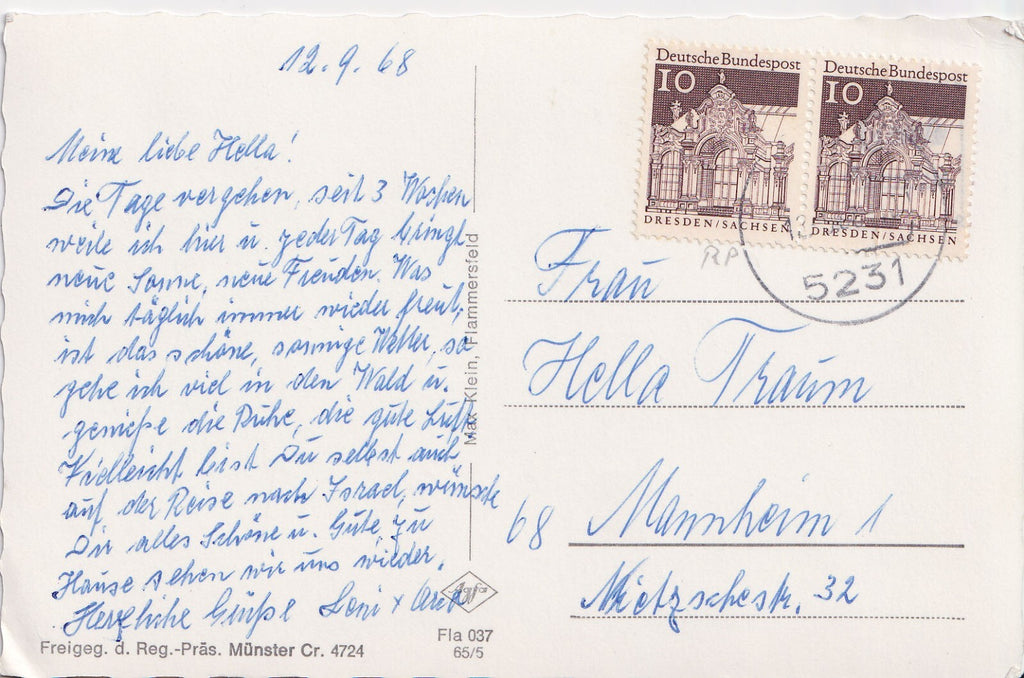 12. 9. 68
Meine liebe Hella!
Die Tage vergehen, seit 3 Wochen
weile ich hier u. jeder Tag bringt
neue Sonne, neue Freuden. Was
mich täglich immer wieder freut,
ist das schöne, sonnige Wetter, so
gehe ich viel in den Wald u.
genieße die Ruhe, die gute Luft.
Vielleicht bist Du selbst auch
auf der Reise nach Israel, wünsche
Dir alles Schöne u. Gute zu
Hause sehen wir uns wieder.
Herzliche Grüße Leni +
Agfa
Freigeg. d. Reg.-Präs. Münster Cr. 4724
Fla 037
65/5
Max Klein, Flammersfeld
Deutsche Bundespost
10
DRESDEN/SACHSEN
Deutsche Bundespost
10
DRESDEN/SACHSEN
RP
13
5231
Frau
Hella Traum
68 Mannheim 1
Nietzschestr. 32